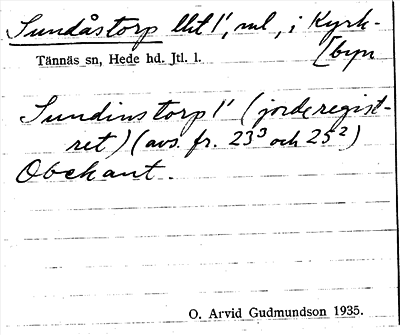 Sundåstorp llit 1', ml, i Kyrk-
[byn
Tännäs sn, Hede hd. Jtl. l.
Sundinstorp 1' (jorderegist-
ret) (avs. fr. 23³ och 25²)
Obekant.
O. Arvid Gudmundson 1935.